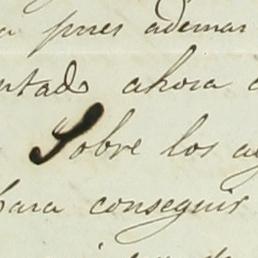 pues ademas
ntado ahora
Sobre los
para conseguir